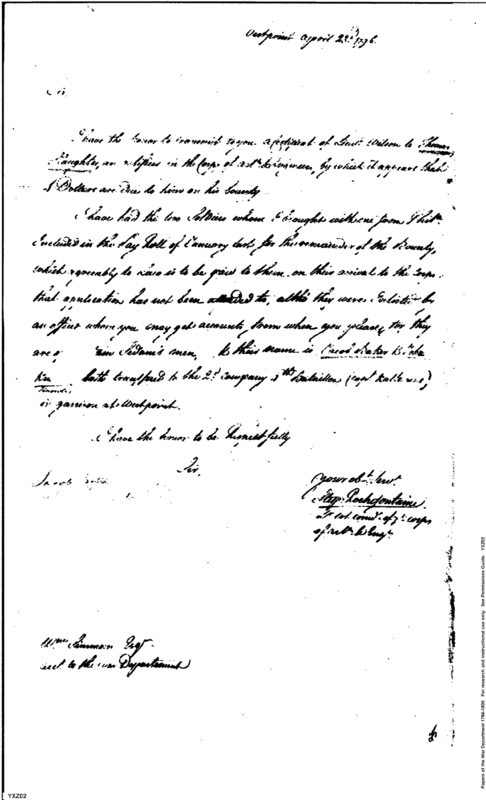 Westpoint April 23.d 1796.
Sir
I have the honor to transmit to you a Certificat of Lieut. Wilson to Thomas
Slaughter, an artificer in the Corps of art. & Engineers by which it appears that
8 Dollars are due to him on his bounty
I have had the two Soldiers whom I brought with me from Phil.
Included in the Pay Roll of January last for the remainder of the Bounty,
which agreeably to Law is to be paid to them on their arrival to the Corps.
that application has not been attended to, altho they were Enlisted by
an officer whom you may get accounts from when you please, for they
are Sedam's men, & their name is Jacob Baker & John
both transfered to the 2.d company Batalion
in garrison at Westpoint.
I have the honor to be Respectfully
Sir.
Jacob
your ob.t Serv.t
Step. Rochefontaine
Lt col com.d of ye corps
of art. & Eng.
Wm Simmons Esq.r
acct to the war Department
YXZ02
Papers of the War Department 1784-1800. For research and instructional use only. See Permissions Guide. YXZ02